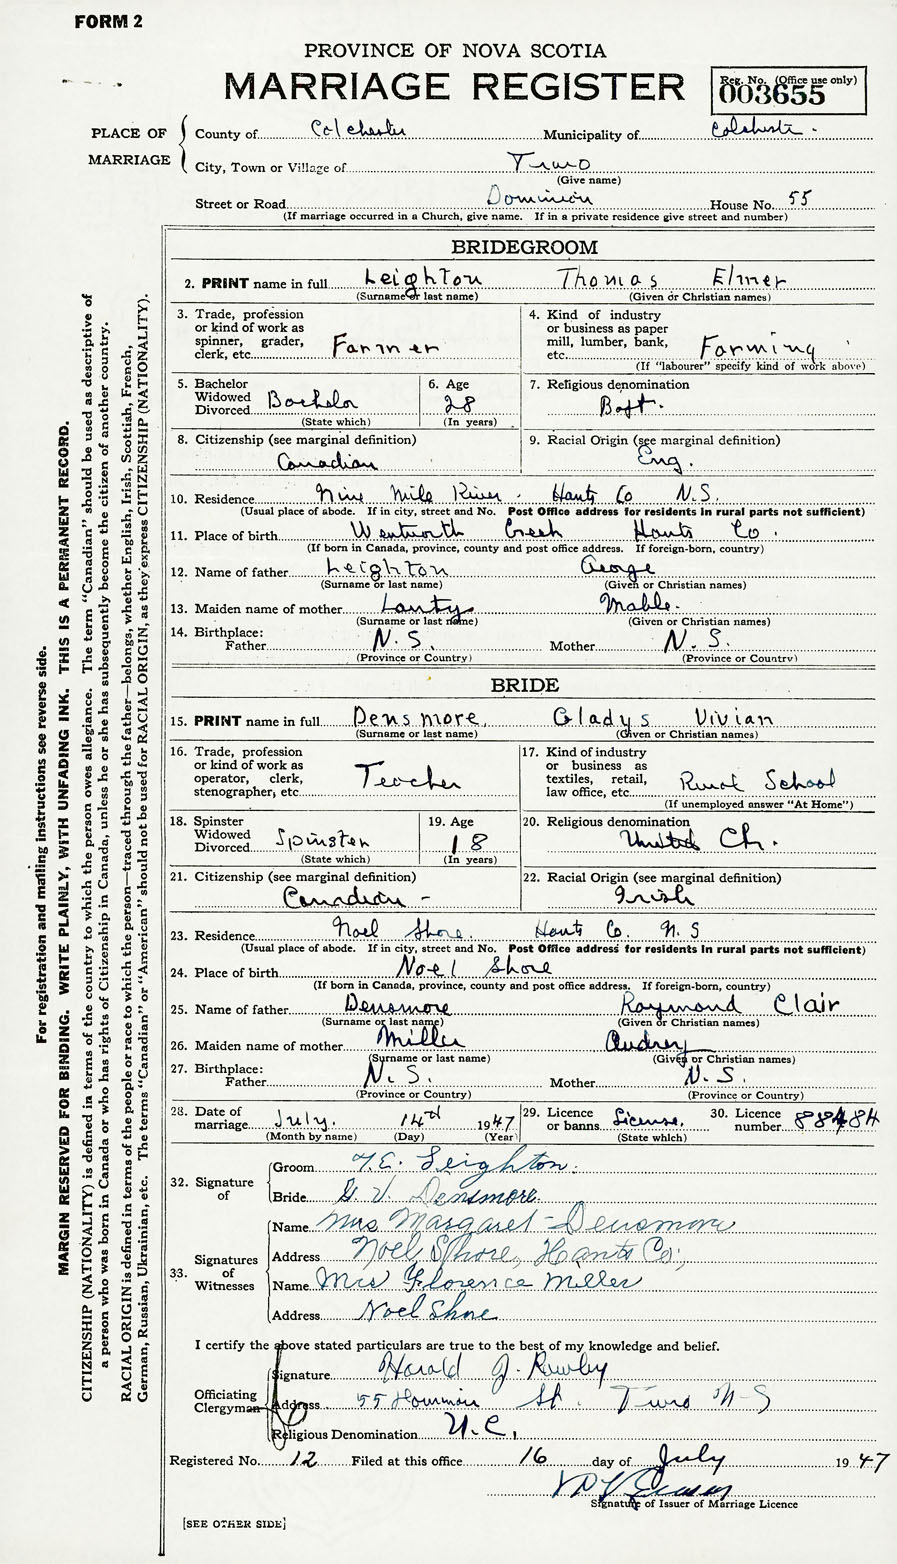 FORM 2
PROVINCE OF NOVA SCOTIA
MARRIAGE REGISTER
Reg. No. (Office use only)
003655
PLACE OF MARRIAGE
County of Colchester Municipality of Colcheste.
City, Town or Village of Truro
(Give name)
Street or Road Dominion House No. 55
(If marriage occurred in a Church, give name. If in a private residence give street and number)
BRIDEGROOM
2. PRINT name in full Leighton Thomas Elmer
(Surname or last name) (Given or Christian names)
3. Trade, profession or kind of work as spinner, grader, clerk, etc. Farmer
4. Kind of industry or business as paper mill, lumber, bank, etc. Farming
(If "labourer" specify kind of work above)
5. Bachelor Widowed Divorced Bachelor
(State which)
6. Age 28
(In years)
7. Religious denomination Bapt.
8. Citizenship (see marginal definition) Canadian
9. Racial Origin (see marginal definition) Eng.
10. Residence Nine Mile River. Hants Co N.S.
(Usual place of abode. If in city, street and No. Post Office address for residents in rural parts not sufficient)
11. Place of birth Wentworth Creek Hants Co.
(If born in Canada, province, county and post office address. If foreign-born, country)
12. Name of father Leighton George
(Surname or last name) (Given or Christian names)
13. Maiden name of mother Lanty Mable.
(Surname or last name) (Given or Christian names)
14. Birthplace:
Father N.S. Mother N.S.
(Province or Country) (Province or Country)
BRIDE
15. PRINT name in full Densmore Gladys Vivian
(Surname or last name) (Given or Christian names)
16. Trade, profession or kind of work as operator, clerk, stenographer, etc. Teacher
17. Kind of industry or business as textiles, retail, law office, etc. Rural School
(If unemployed answer "At Home")
18. Spinster Widowed Divorced Spinster
(State which)
19. Age 18
(In years)
20. Religious denomination United Ch.
21. Citizenship (see marginal definition) Canadian -
22. Racial Origin (see marginal definition) Irish
23. Residence Noel Shore. Hants Co. N.S
(Usual place of abode. If in city, street and No. Post Office address for residents in rural parts not sufficient)
24. Place of birth Noel Shore
(If born in Canada, province, county and post office address. If foreign-born, country)
25. Name of father Densmore Raymond Clair
(Surname or last name) (Given or Christian names)
26. Maiden name of mother Miller Audrey
(Surname or last name) (Given or Christian names)
27. Birthplace:
Father N.S. Mother N.S.
(Province or Country) (Province or Country)
28. Date of marriage July. 14th 1947
(Month by name) (Day) (Year)
29. Licence or banns License.
(State which)
30. Licence number 88484
32. Signature of
Groom T.E. Leighton.
Bride G V. Densmore.
33. Signatures of Witnesses
Name Mrs Margaret Densmore
Address Noel Shore, Hants Co;
Name Mrs Florence Miller
Address Noel Shore
I certify the above stated particulars are true to the best of my knowledge and belief.
Officiating Clergyman
Signature Harold J.
Address 55 Dominion St. Truro N-S
Religious Denomination U.C.
Registered No. 12 Filed at this office 16 day of July 1947
Signature of Issuer of Marriage Licence
[SEE OTHER SIDE]
For registration and mailing instructions see reverse side.
MARGIN RESERVED FOR BINDING. WRITE PLAINLY, WITH UNFADING INK. THIS IS A PERMANENT RECORD.
CITIZENSHIP (NATIONALITY) is defined in terms of the country to which the person owes allegiance. The term "Canadian" should be used as descriptive of
a person who was born in Canada or who has rights of Citizenship in Canada, unless he or she has subsequently become the citizen of another country.
RACIAL ORIGIN is defined in terms of the people or race to which the person—traced through the father—belongs, whether English, Irish, Scottish, French,
German, Russian, Ukrainian, etc. The terms "Canadian" or "American" should not be used for RACIAL ORIGIN, as they express CITIZENSHIP (NATIONALITY).